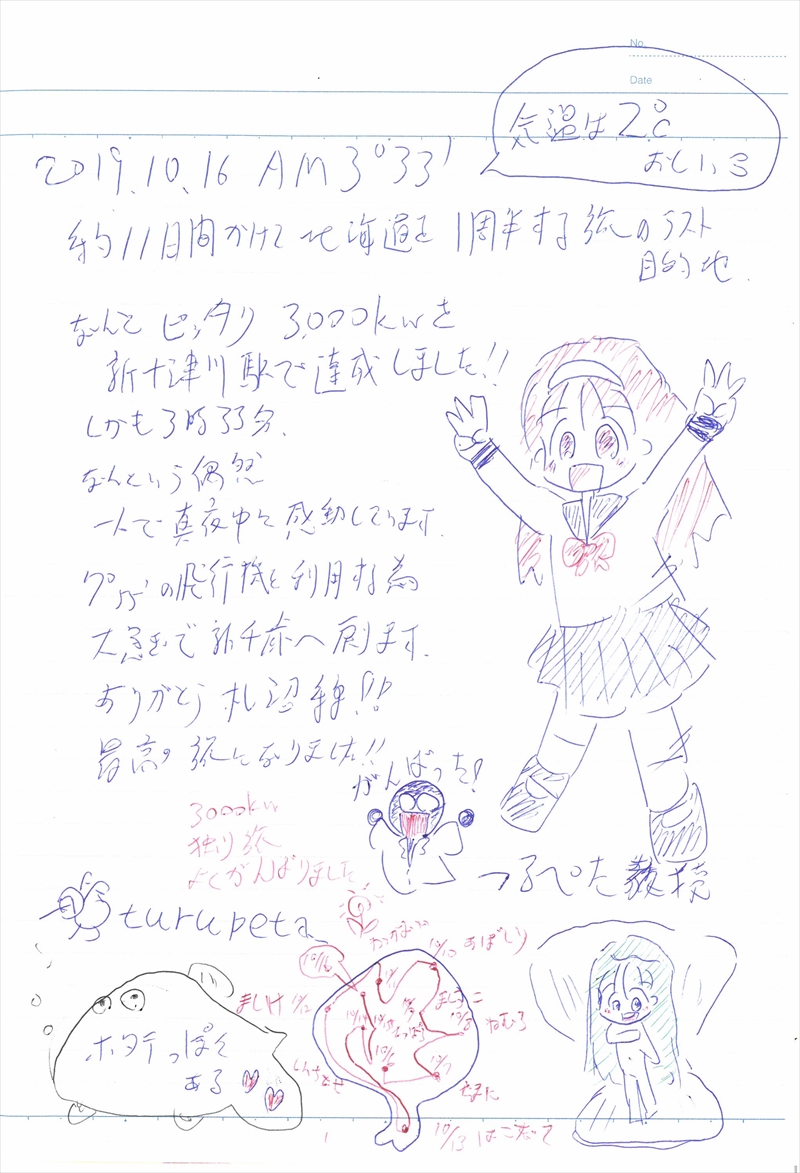 No.
Date
気温は2℃
おしいっ3
2019.10.16 AM3°33'
約11日間かけて北海道を1周半する旅のラスト
目的地.
なんと ピッタリ 3,000kmを
新十津川駅で達成しました!!
しかも3時33分.
なんという偶然
一人で真夜中に感動してます.
の飛行機を利用する為
大急ぎで新千歳へ戻ります.
ありがとう札沼線!!
最高の旅になりました!!
がんばった!
3000km
独り旅
よくがんばりました
つるぺた教授
turupeta
わっかない
10/10 あばしり
10/16
ましけ 10/12
ねむろ
10/8
さっぽろ
10/6
10/7
しんちとせ
さまに
10/13 はこだて
ホタテっぽく
ある